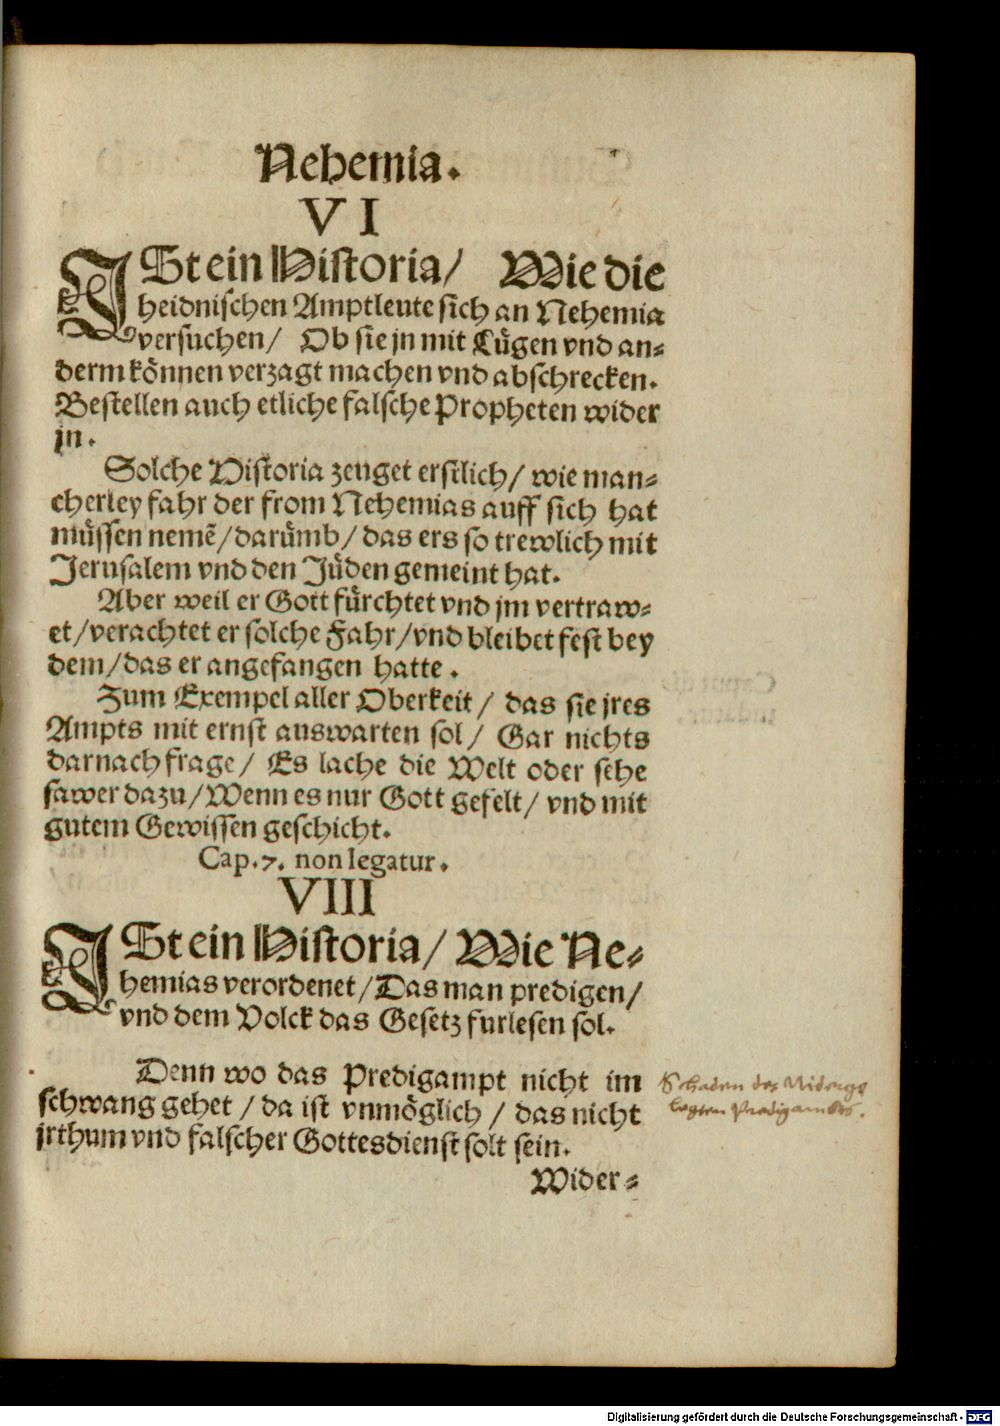 Nehemia.
VI
ISt ein Historia/ Wie die
heidnischen Amptleute sich an Nehemia
versuchen/ Ob sie jn mit Lügen vnd an-
derm können verzagt machen vnd abschrecken.
Bestellen auch etliche falsche Propheten wider
jn.
Solche Historia zeuget erstlich/ wie man-
cherley fahr der from Nehemias auff sich hat
müssen nemẽ/darümb/das ers so trewlich mit
Jerusalem vnd den Jüden gemeint hat.
Aber weil er Gott fürchtet vnd jm vertraw-
et/verachtet er solche Fahr/vnd bleibet fest bey
dem/das er angefangen hatte.
Zum Exempel aller Oberkeit/ das sie jres
Ampts mit ernst auswarten sol/ Gar nichts
darnach frage/ Es lache die Welt oder sehe
sawer dazu/Wenn es nur Gott gefelt/ vnd mit
gutem Gewissen geschicht.
Cap.7. non legatur.
VIII
ISt ein Historia/ Wie Ne-
hemias verordenet/Das man predigen/
vnd dem Volck das Gesetz furlesen sol.
Denn wo das Predigampt nicht im
schwang gehet/da ist vnmöglich/das nicht
jrthum vnd falscher Gottesdienst solt sein.
Schaden des Niderge
legten Predigamots.
Wider-
Digitalisierung gefördert durch die Deutsche Forschungsgemeinschaft - DFG